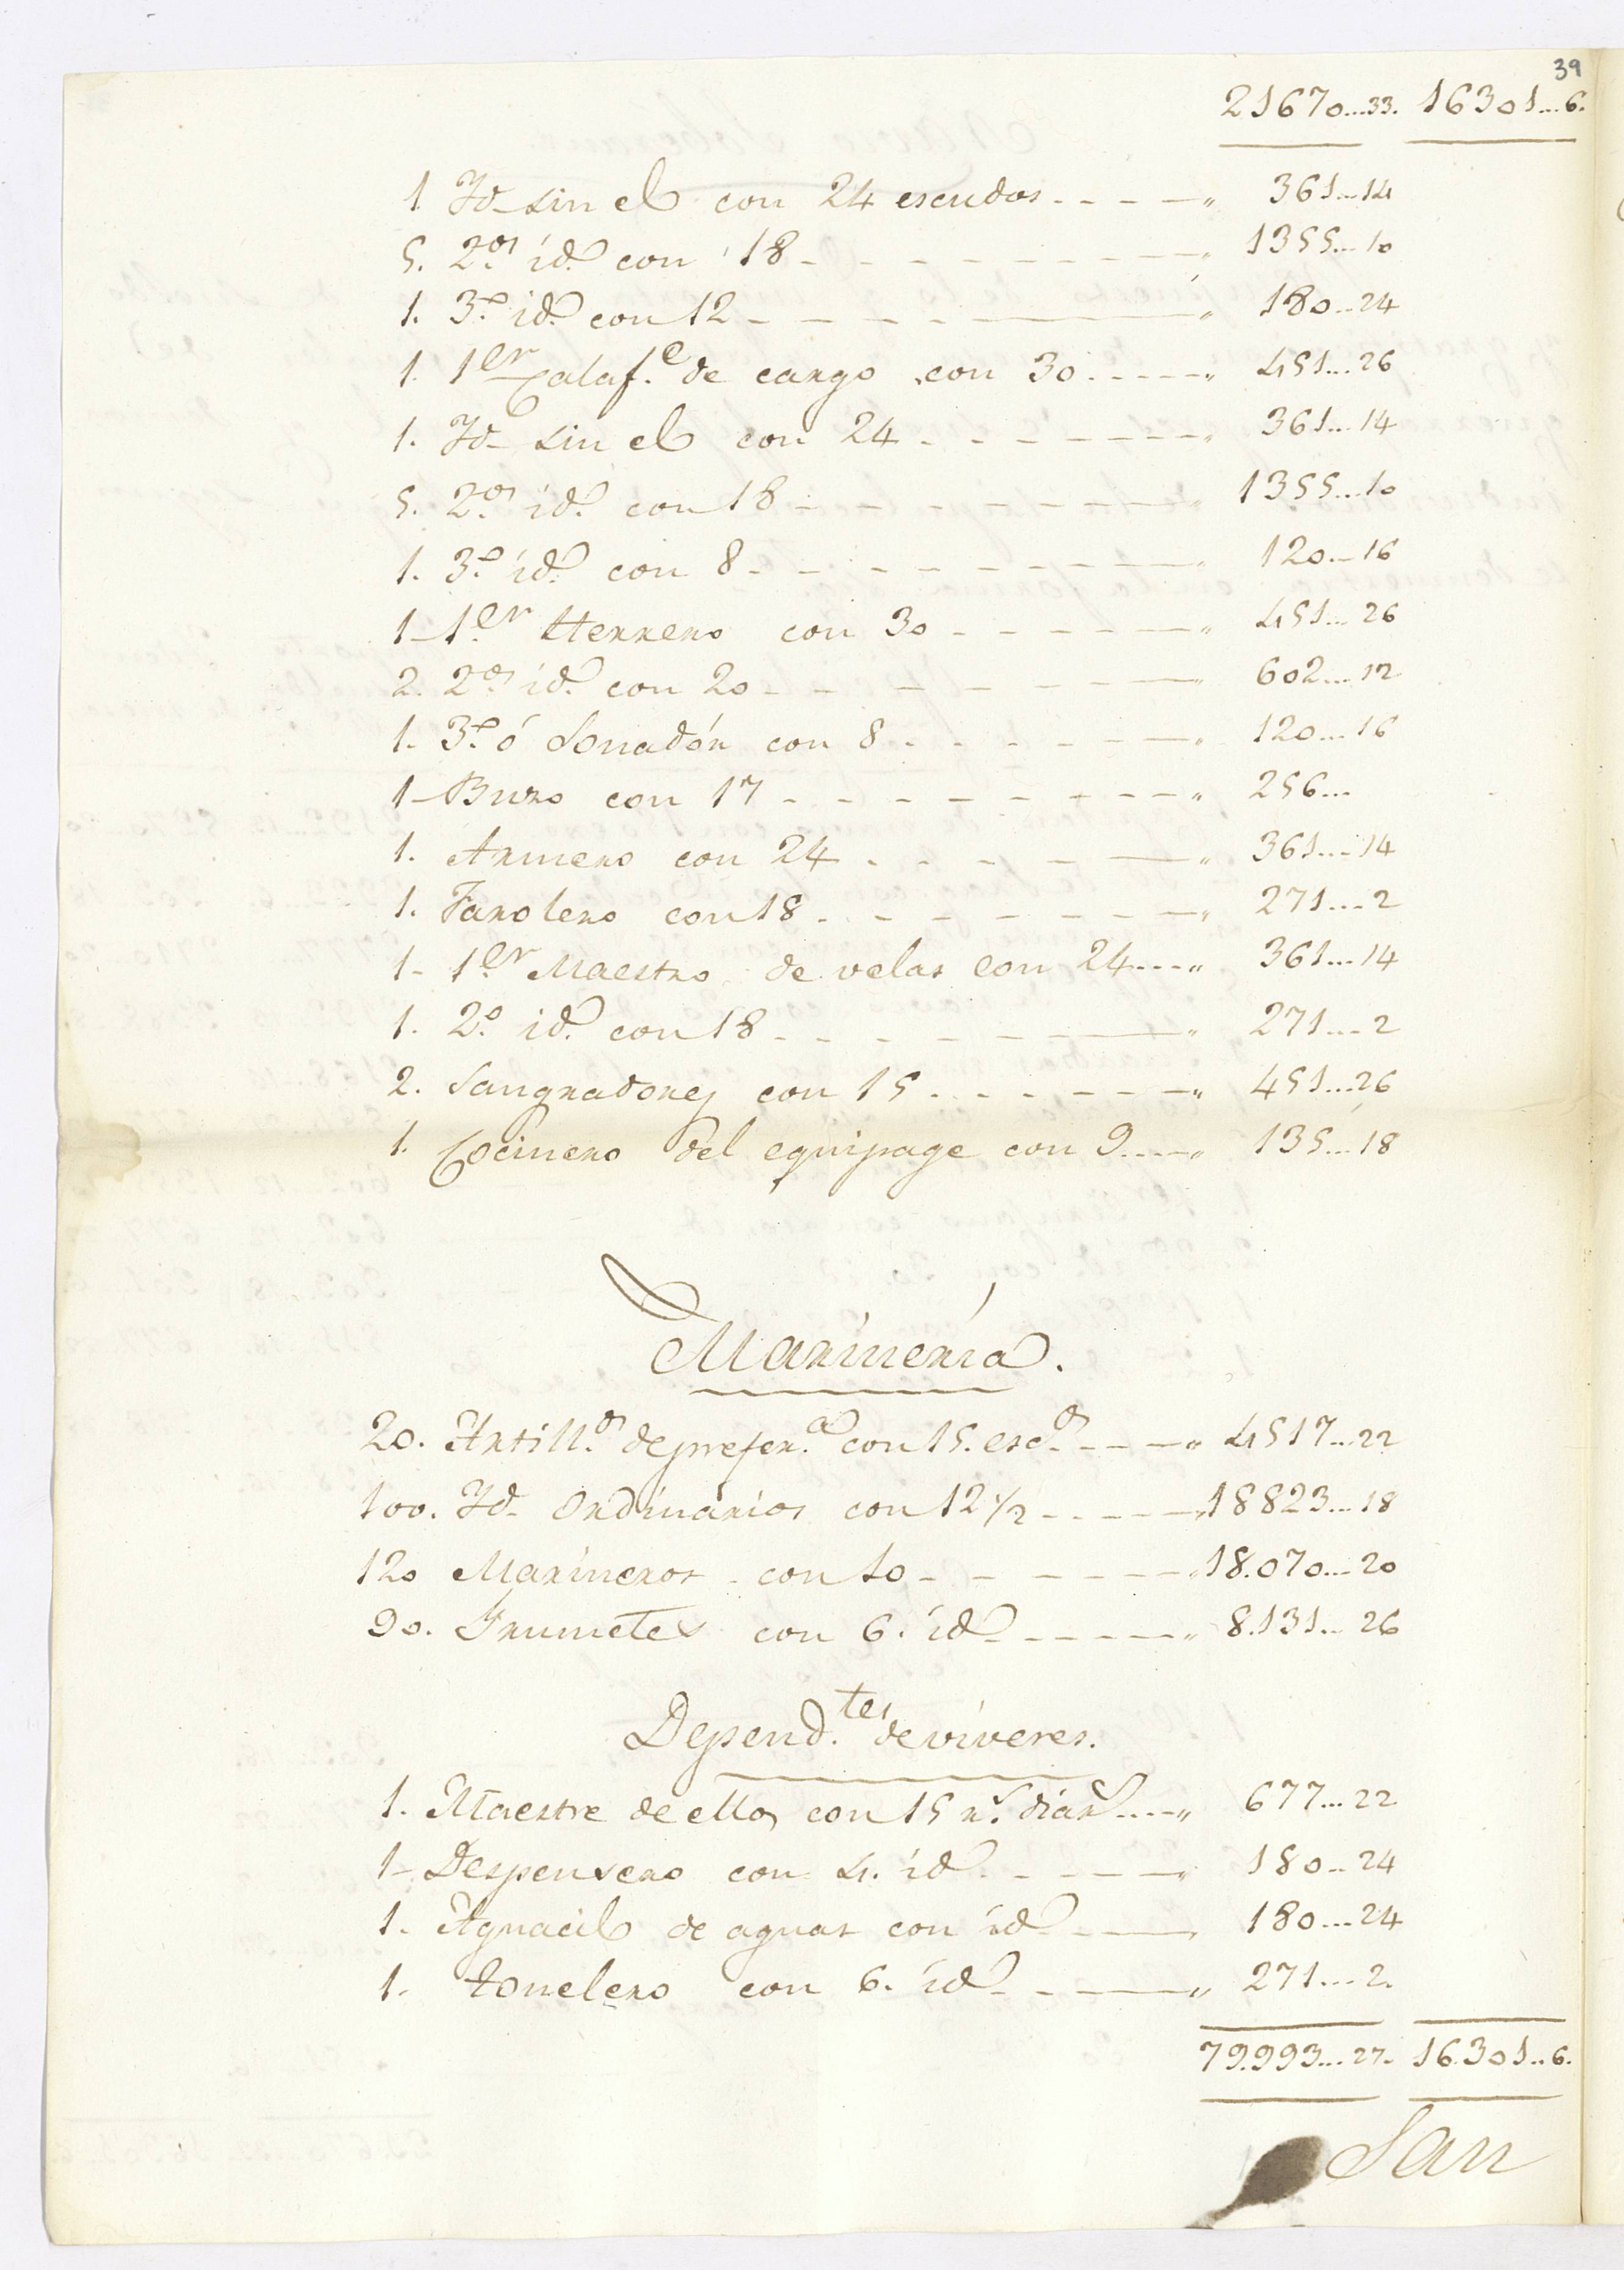 39
21670...33. 16301...6.
1 Yd. sin el con 24 escudos - - - - „ 361...14
5. 2.os id. con 18 - - - - - - - - „ 1355...10
1. 3.o id. con 12 - - - - - - „ 180...24
1. 1er Calaf.e de cargo con 30 - - - - - „ 451...26
1. Yd. sin el con 24 - - - - - - - „ 361...14
5. 2.os id. con 18 - - - - - - - - „ 1355...10
1. 3.o id. con 8 - - - - - - - - „ 120...16
1 - 1.er Herrero con 30 - - - - - - „ 451...26
2. 2.os id. con 20 - - - - - - - - „ 602...12
1. 3.o ó Sonadór con 8 - - - - - - „ 120...16
1 - Buzo con 17 - - - - - - - - - „ 256...
1. Armero con 24 - - - - - - „ 361...14
1. Farolero con 18 - - - - - - - „ 271...2
1 - 1.er Maestro de velas con 24 - - - - „ 361...14
1. 2.o id. con 18 - - - - - - - „ 271...2
2. Sangradores con 15 - - - - - - - „ 451...26
1. Cocinero del equipage con 9 - - - - „ 135...18
Marinería.
20. Artill.os de prefer.a con 15. esc.s - - - - „ 4517...22
100. Yd. Ordinarios con 12 1/2 - - - - - „ 18823...18
120 Marineros con 10 - - - - - - - „ 18.070...20
90. Grumetes con 6. id. - - - - - „ 8.131...26
Depend.tes de viveres.
1. Maestre de ellos con 15 r.s diar.s - - - - „ 677...22
1 - Despensero con 4. id. - - - - „ 180...24
1. Aguacil de aguas con id. - - - „ 180...24
1. tonelero con 6. id. - - - - „ 271...2.
79.993...27. 16.301...6.
San